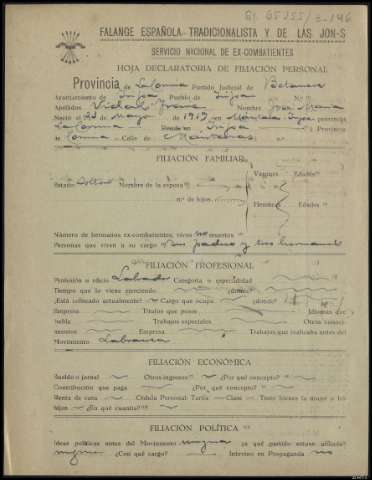 FALANGE ESPAÑOLA TRADICIONALISTA Y DE LAS JON-S
SERVICIO NACIONAL DE EX-COMBATIENTES
HOJA DECLARATORIA DE FILIACIÓN PERSONAL
Provincia de La Coruña Partido Judicial de Betanzos
Ayuntamiento de Irijoa Pueblo de Irijoa N.º
Apellidos Vidal Nombre Jose Maria
Nació el de Mayo de 1919 en Irijoa provincia
La Coruña Reside en Irijoa Provincia
de Coruña Calle de
FILIACIÓN FAMILIAR
Varones Edades
Estado Soltero Nombre de la esposa
n.º de hijos
Hembras Edades
Número de hermanos ex-combatientes, vivos no muertos
Personas que viven a su cargo sus padres y sus hermanos
FILIACIÓN PROFESIONAL
Profesión u oficio Labrador Categoría o especialidad
Tiempo que la viene ejerciendo ¿dónde?
¿Está colocado actualmente? Cargo que ocupa ¿dónde?
Empresa Títulos que posee Idiomas que
habla Trabajos especiales Otros conoci-
mientos Empresa Trabajos que realizaba antes del
Movimiento Labranza
FILIACIÓN ECONÓMICA
Sueldo o jornal Otros ingresos ¿Por qué concepto?
Contribución que paga ¿Por qué concepto?
Renta de casa Cédula Personal Tarifa Clase Tiene bienes la mujer o los
hijos ¿En qué cuantía?
FILIACIÓN POLÍTICA
Ideas políticas antes del Movimiento ninguna ¿a qué partido estuvo afiliado?
ninguno ¿Con qué cargo? Intervino en Propaganda no